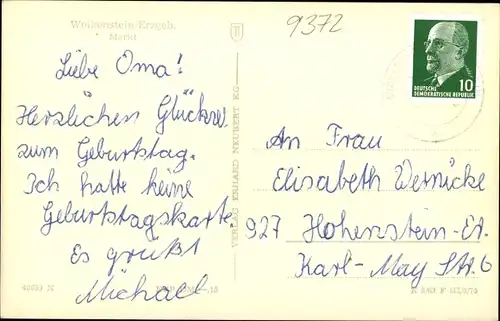 Wolkenstein/Erzgeb.
Markt
9372
Liebe Oma!
Herzlichen Glückw.
zum Geburtstag.
Ich hatte keine
Geburtstagskarte
Es grüßt
Michael
VERLAG ERHARD NEUBERT KG
DEUTSCHE
DEMOKRATISCHE REPUBLIK
10
An Frau
Elisabeth Wernicke
927 Hohenstein-Er.
Karl-May Str. 6